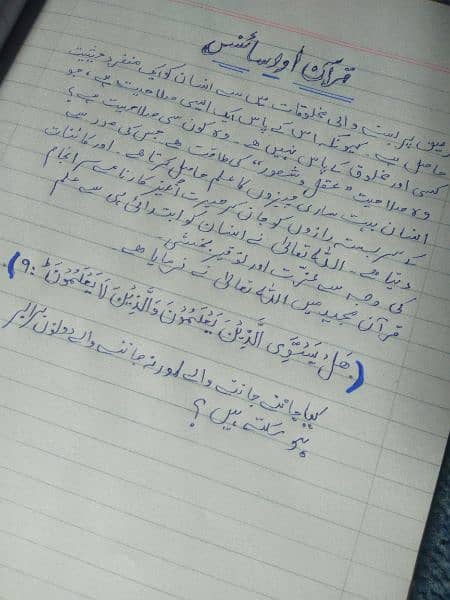 قرآن اور سائنس
زمین پر بسنے والی مخلوقات میں سے انسان کو ایک منفرد حیثیت
حاصل ہے۔ کیونکہ اس کے پاس ایک ایسی صلاحیت ہے، جو
کسی اور مخلوق کے پاس نہیں ہے۔ وہ کون سی صلاحیت ہے؟
وہ صلاحیت "عقل و شعور" کی طاقت ہے۔ جس کی مدد سے
انسان بہت ساری چیزوں کا علم حاصل کرتا ہے۔ اور کائنات
کے سربستہ رازوں کو جان کر حیرت انگیز کارنامے سرانجام
دیتا ہے۔ اللہ تعالیٰ نے انسان کو ابتدا ہی سے علم
کی وجہ سے عزت اور توقیر بخشی۔
قرآن مجید میں اللہ تعالیٰ نے فرمایا ہے۔
(هَلْ يَسْتَوِي الَّذِيْنَ يَعْلَمُوْنَ وَالَّذِيْنَ لَا يَعْلَمُوْنَ ط :٩)
کیا جاننے والے اور نہ جاننے والے دونوں برابر
ہو سکتے ہیں؟